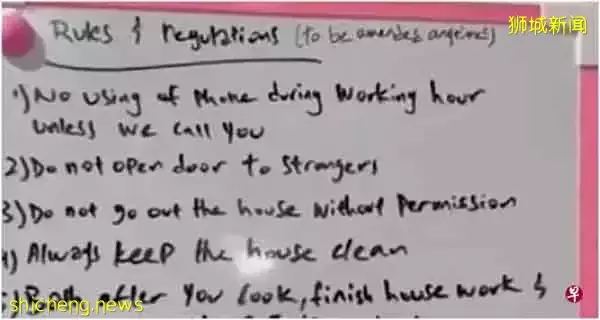 Rules & regulations (to be amended anytime)
狮城新闻
1) No using of Phone during Working hour
unless we call you
2) Do not open door to strangers
3) Do not go out the house without Permission
4) Always keep the house clean
after you cook, finish house work &
shicheng.news
早